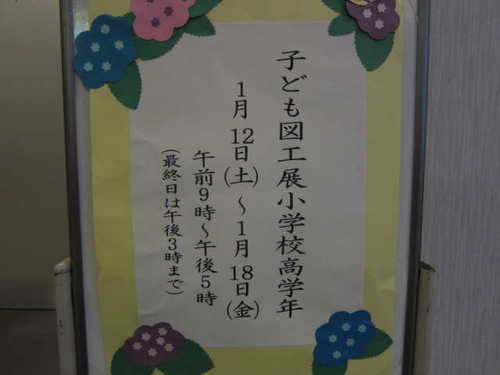 子ども図工展小学校高学年
1月12日(土)～1月18日(金)
午前9時～午後5時
(最終日は午後3時まで)